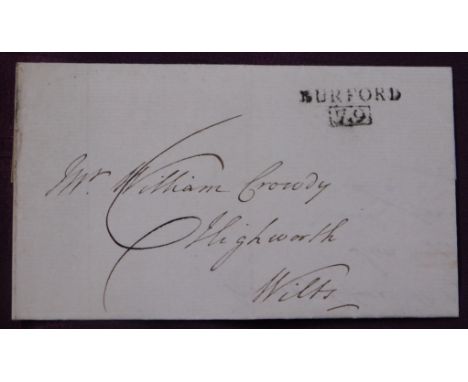 BURFORD
79
Mr. William Crowdy
6 Highworth
Wilts